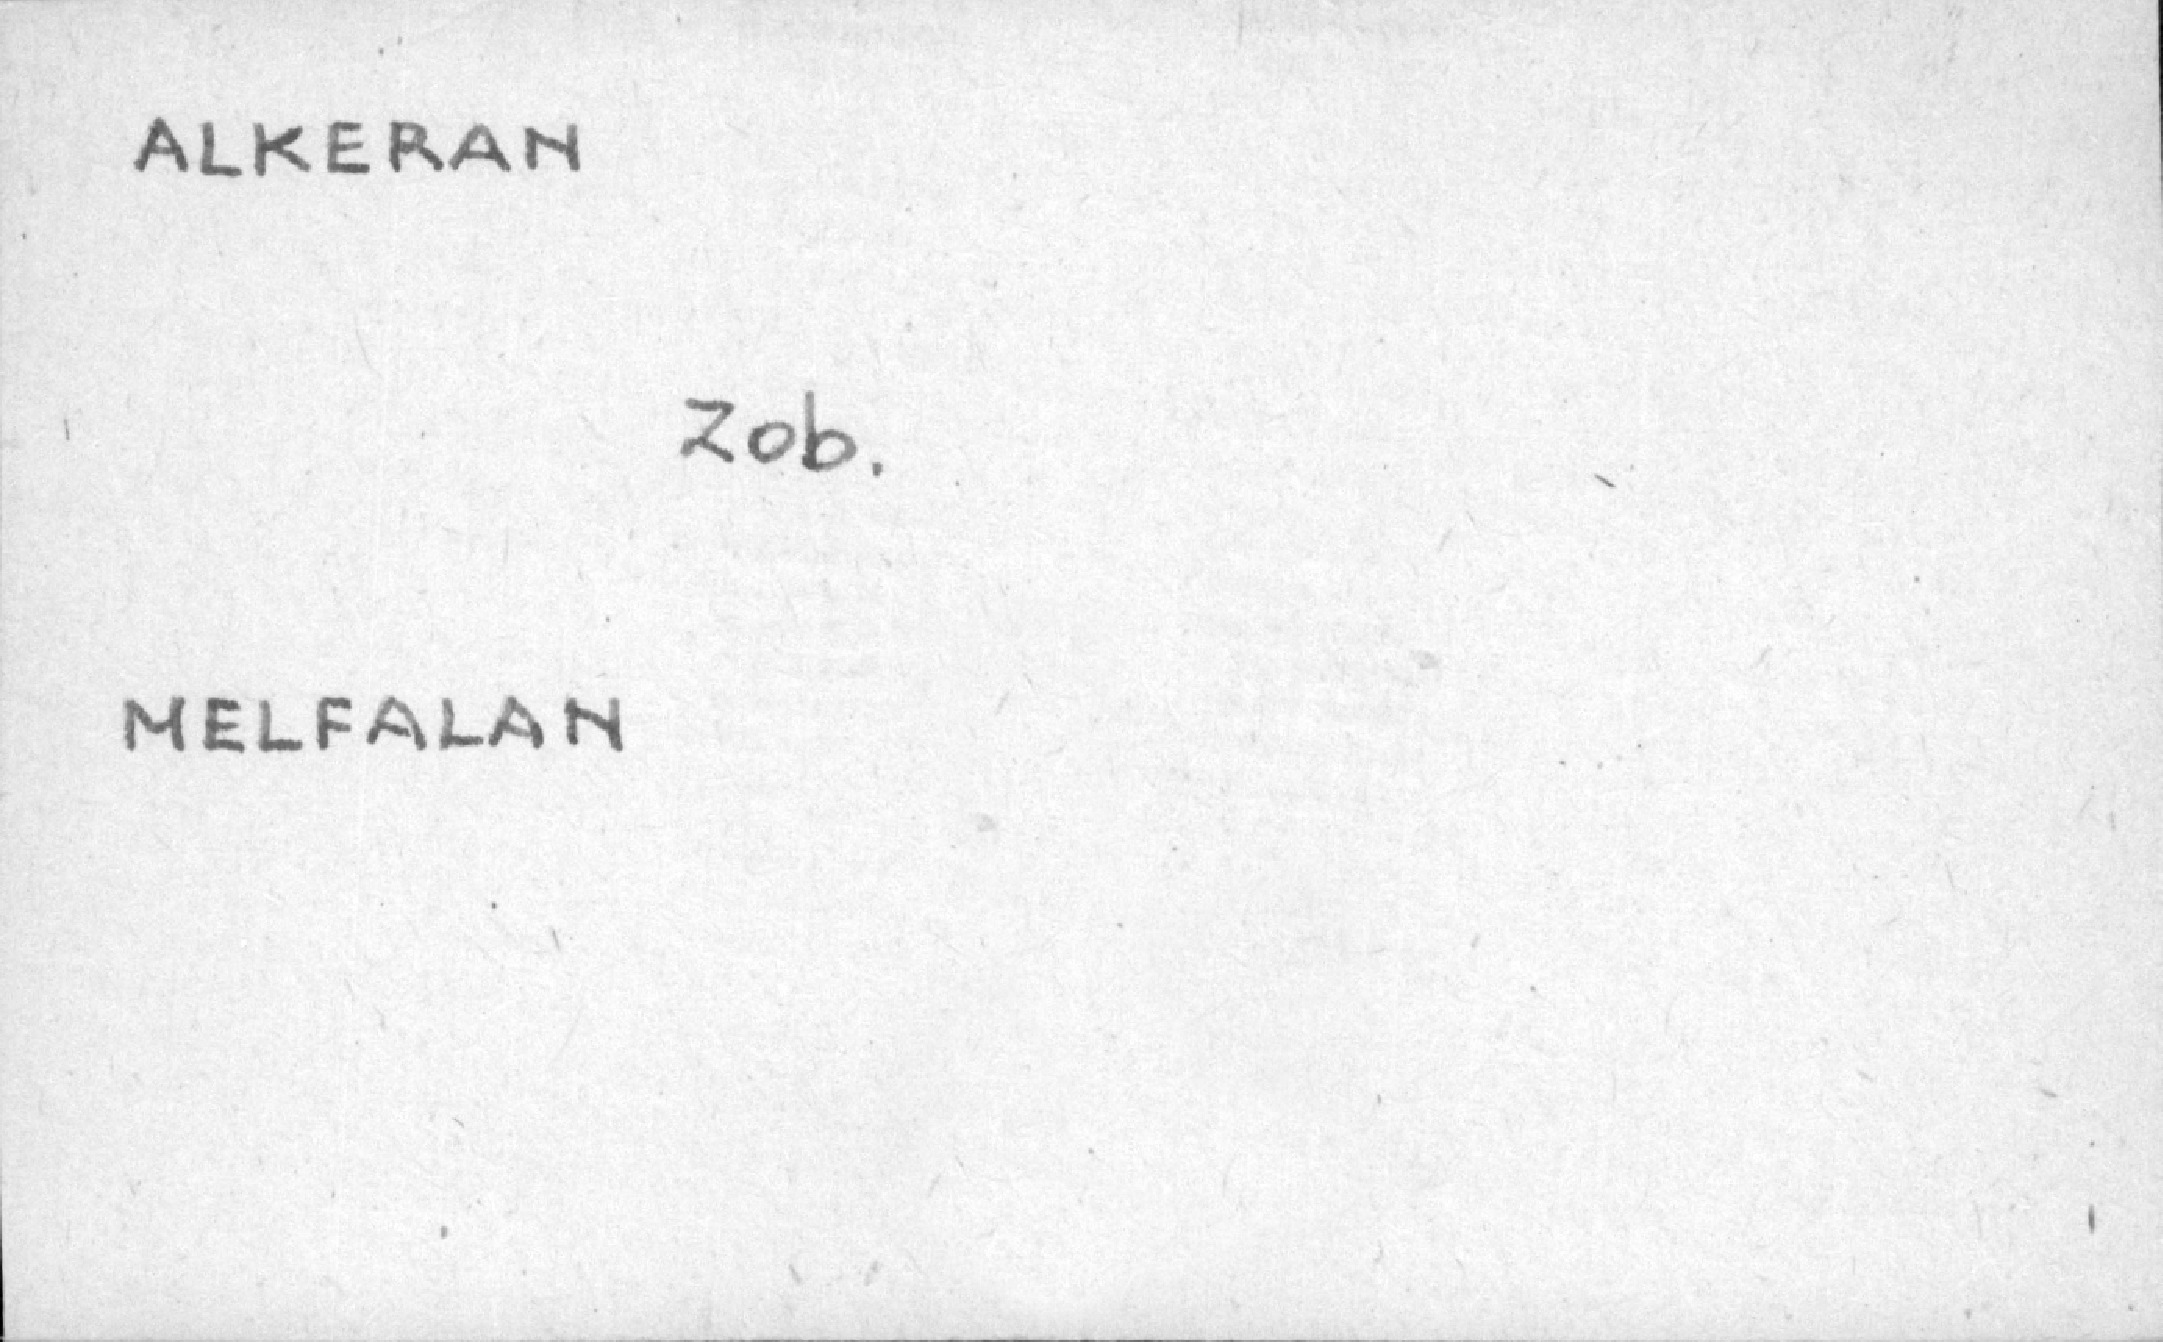 ALKERAN
Zob.
MELFALAN